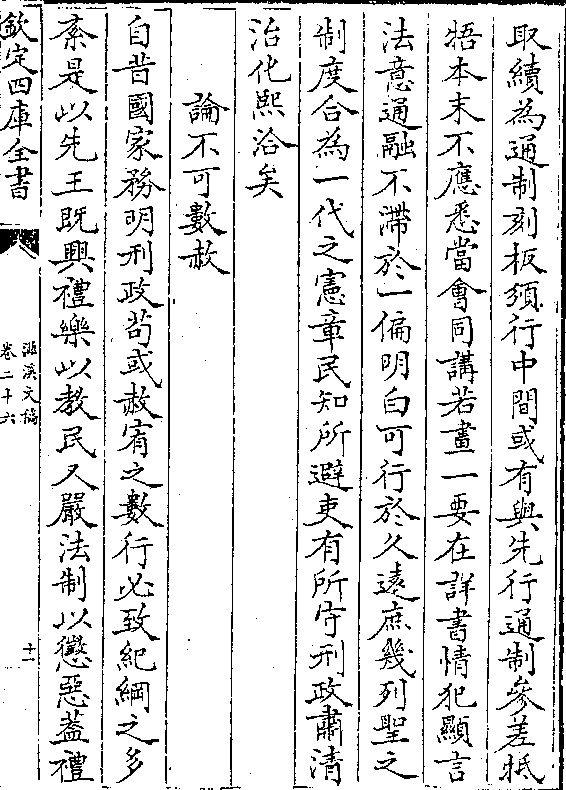 取續為通制刻板頒行中間或有與先行通制參差牴
牾本末不應悉當會同講若畫一要在詳書情犯顯言
法意通融不滯於一偏明白可行於久遠庶幾列聖之
制度合為一代之憲章民知所避吏有所守刑政肅清
治化熙洽矣
論不可數赦
自昔國家務明刑政茍或赦宥之數行必致紀綱之多
紊是以先王既興禮樂以教民又嚴法制以懲惡蓋禮
欽定四庫全書
滋溪文稿
卷二十六
十一